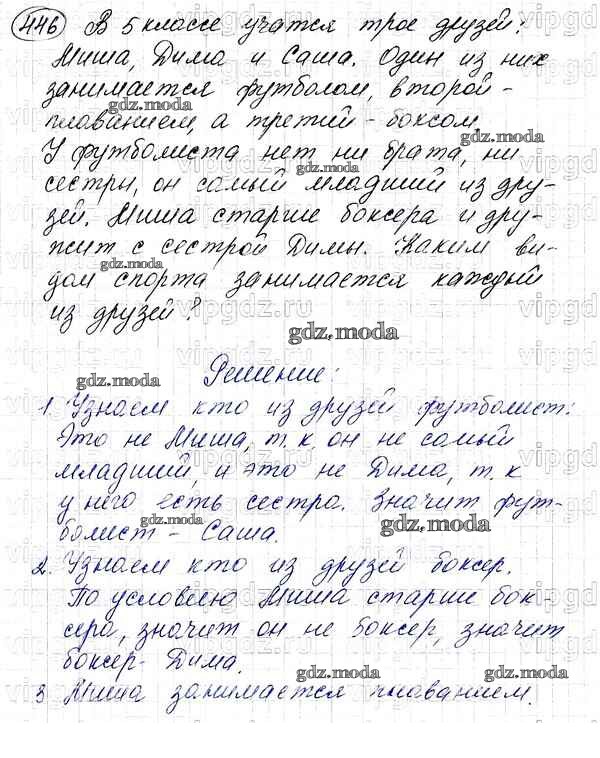 446 В 5 классе учатся трое друзей:
Миша, Дима и Саша. Один из них
занимается футболом, второй -
плаванием, а третий - боксом.
У футболиста нет ни брата, ни
сестры, он самый младший из дру-
зей. Миша старше боксера и дру-
жит с сестрой Димы. Каким ви-
дом спорта занимается каждый
из друзей?
Решение:
1. Узнаем кто из друзей футболист:
Это не Миша, т.к он не самый
младший, и это не Дима, т.к
у него есть сестра. Значит фут-
болист - Саша.
2. Узнаем кто из друзей боксер.
По условию Миша старше бок-
сера, значит он не боксер, значит
боксер - Дима.
3 Миша занимается плаванием.